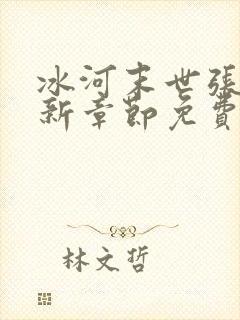 冰河末世張
新章節免費
林文哲